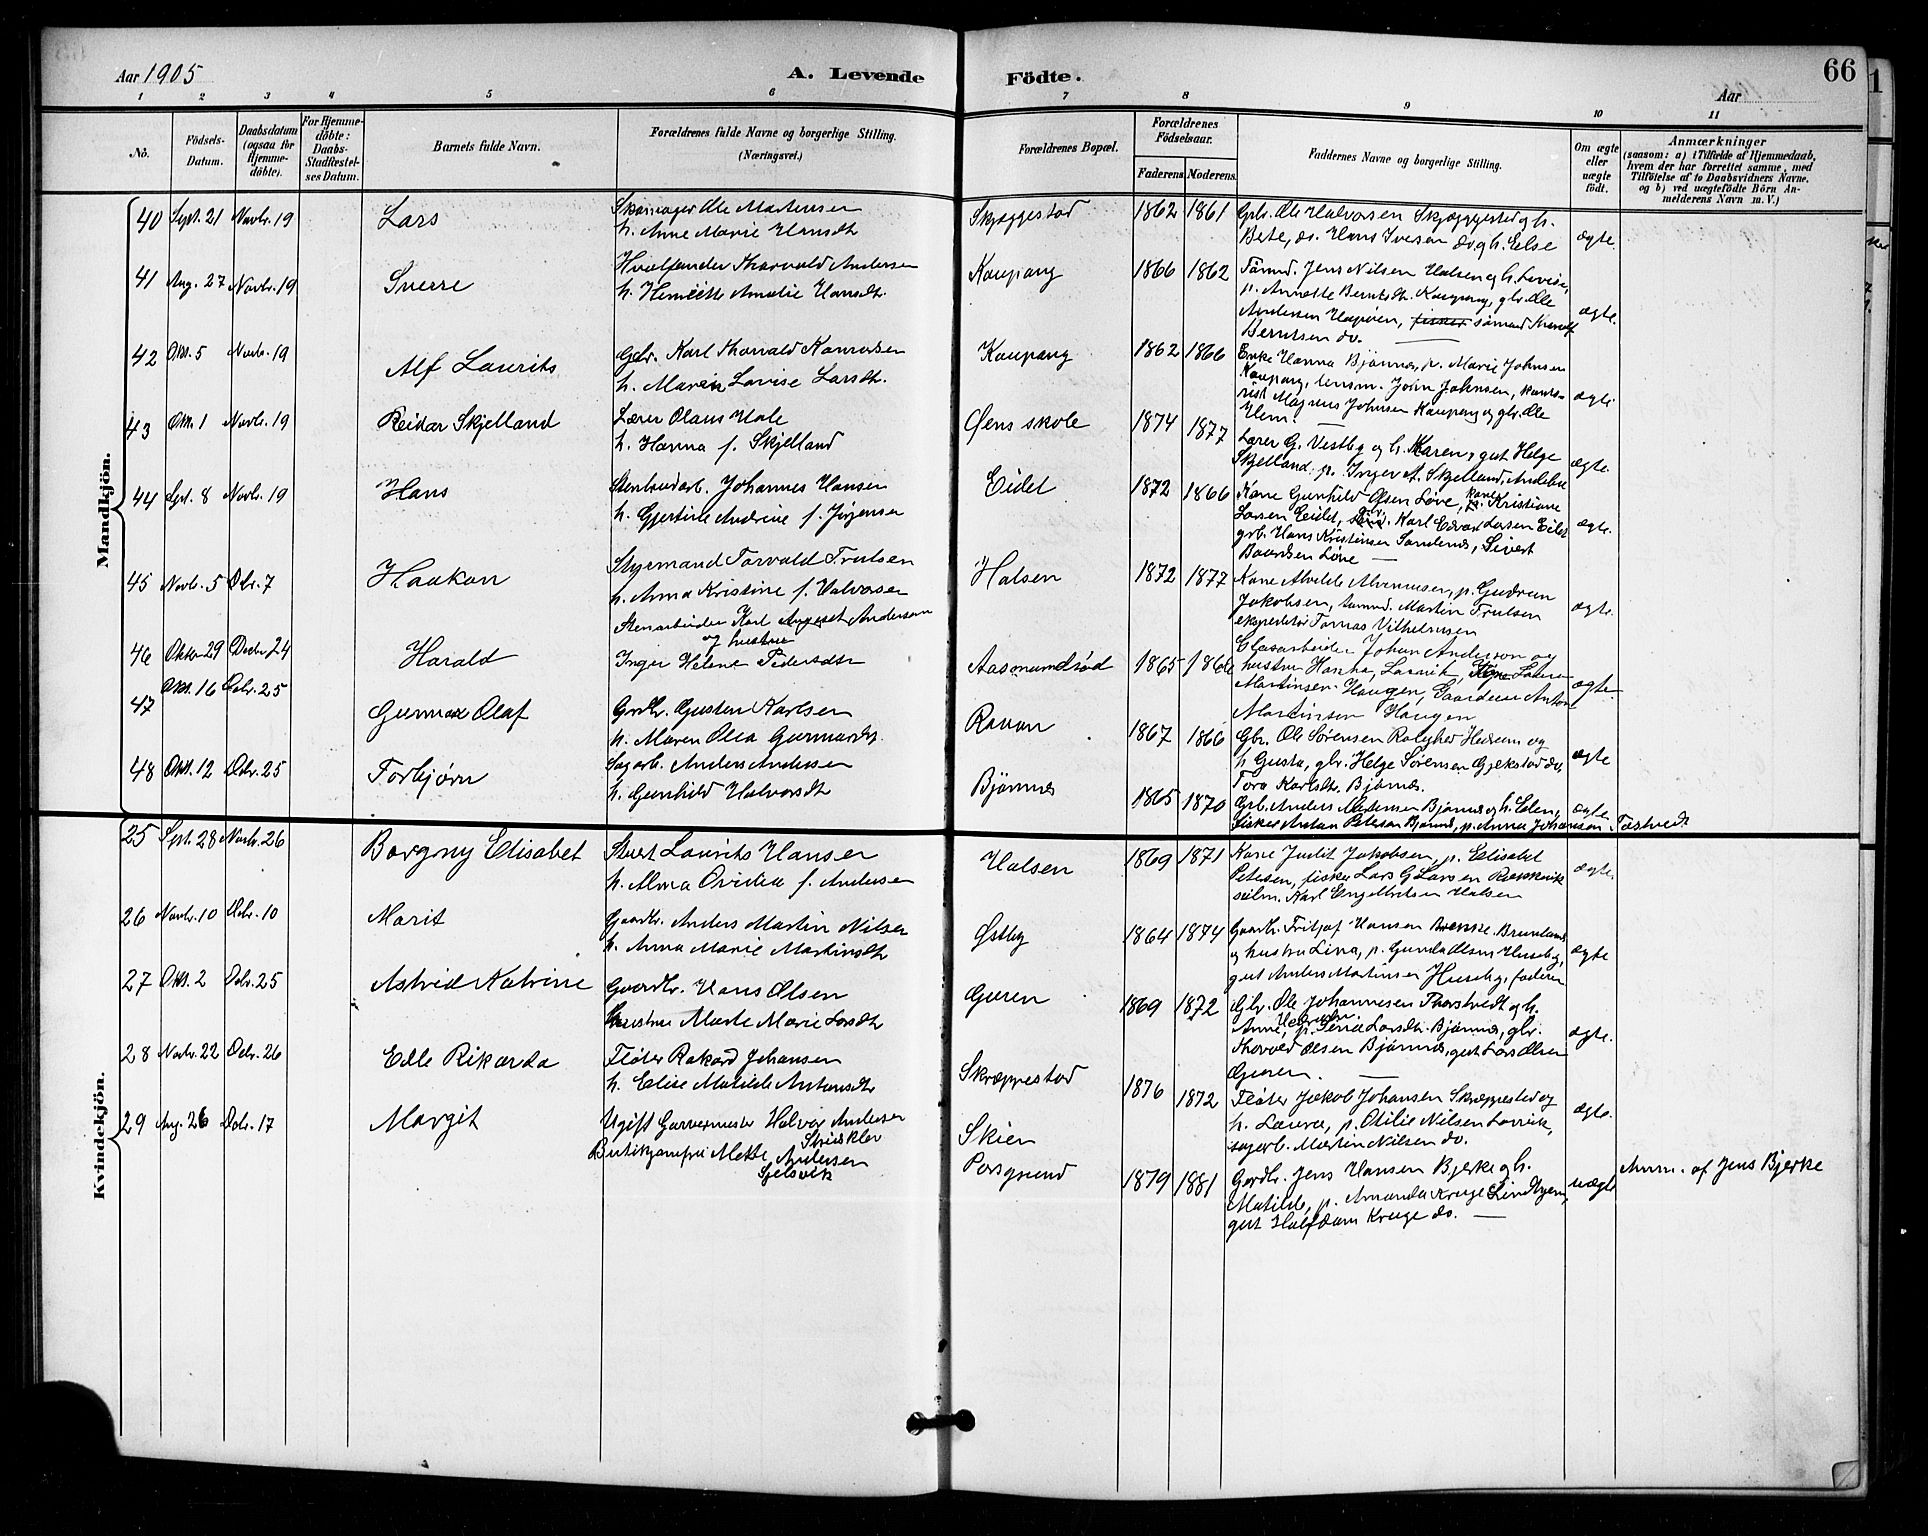 Aar 1905
A. Levende Födte.
66
Aar
1 2 3 4 5 6 7 8 9 10 11
No.
Födsels-Datum.
Daabsdatum (ogsaa for Hjemmedöbte).
For Hjemmedöbte: Daabs-Stadfestelses Datum.
Barnets fulde Navn.
Forældrenes fulde Navne og borgerlige Stilling. (Næringsvei.)
Forældrenes Bopæl.
Forældrenes Födselsaar.
Faderens Moderens.
Faddernes Navne og borgerlige Stilling.
Om ægte eller uægte födt.
Anmærkninger
(saasom: a) i Tilfælde af Hjemmedaab, hvem der har forrettet samme, med Tilföielse af to Daabsvidners Navne. og b) ved uægtefödte Börn Anmelderens Navn m. V.)
Mandkjön.
40 Sept. 21 Novbr. 19 Lars
Skomager Ole Martinsen
h. Anne Marie Hansdtr
Skjæggestad 1862 1861
Grb. Ole Halvorsen Skjæggestad g h.
Bete, do. Hans Iversen do. g h. Else
ægte
41 Aug. 27 Novbr. 19 Sverre
Hvalfanger Thorvald Andersen
h. Amalie Hansdtr.
Kaupang 1866 1862
Tømmd. Jens Nilsen Halsen g h. Lovise,
p. Annette Berntsdtr. Kaupang, gbr. Ole
Andersen fisker sømand
Berntsen do.
ægte.
42 Okt. 5 Novbr. 19 Alf Laurits
Gbr. Karl Thorvald
h. Maren Lovise Larsdtr.
Kaupang 1862 1866
Enke Hanna Bjønnes, p. Marie Johnsen
Kaupang, lensm. John Johnsen, konto-
rist Magnus Johnsen Kaupang og gbr. Ole
Hem.
ægte
43 Okt. 1 Novbr. 19 Reidar Skjelland
Lærer Olaus Hale
h. Hanna f. Skjelland
Øens skole 1874 1877
Lærer G. Vestby og h. Maren, gut Helge
Skjelland, p. Inger A. Skjelland, Andebu
ægte.
44 Sept. 8 Novbr. 19 Hans
Stenbrudarb. Johannes Hansen
h. Gjertine Andrine f. Jørgensen
Eidet 1872 1866
Kone Gunhild Olsen Løve, kone Kristiane
Larsen Eidet, Karl Edvard Larsen Eidet
grb. Hans Kristiansen Sandenes, Sivert
Baardsen Løve
ægte.
45 Novbr. 5 Dcbr. 7 Haakon
Styrmand Torvald Trulsen
h. Anna Kristine f. Halvorsen
Halsen 1872 1877
Kone Alvilde p. Gudrun
Jakobsen, tømmd. Martin Trulsen
ekspeditør Tomas Vilhelmsen
ægte.
46 Oktbr 29 Decbr 24 Harald
Stenarbeider Karl August Anderson
og hustru
Inger Helene Pedersdtr
Aasmundrød 1865 1866
Glasarbeider Johan Anderson og
hustru Larvik,
Martinsen Haugen, Gaardeier Anton
Martinsen Haugen
ægte
47 Okt. 16 Dcbr. 25 Gunnar Olaf
Grdbr. Gustav Karlsen
h. Maren Olea Gunnarsdtr.
Ravan 1867 1866
Gbr. Ole Sørensen Hedrum og
h Gusta, gbr. Helge Sørensen Gjekstad do,
Tora Karlsdtr. Bjønnes.
ægte
48 Okt. 12 Dcbr. 25 Torbjørn
Sagarb. Anders Andersen
h. Gunhild Halvorsdtr
Bjønnes 1865 1870
Grb. Anders Bjønnes g h. Elen,
fisker Anton Petersen Bjønnes, p. Anna Johansen Tostvedt
ægte
Kvindekjön.
25 Sept. 28 Novbr. 26 Borgny Elisabet
Stuert Laurits Hansen
h. Alma Ovidia f. Andersen
Halsen 1869 1871
Kone Judit Jakobsen, p. Elisabet
Petersen, fisker Lars G Larsen
Karl Engelbretsen Halsen
ægte
26 Novbr. 10 Dcbr. 10 Marit
Gaardbr. Anders Martin Nilsen
h. Anna Marie Martinsdtr
Østby 1864 1874
Gaardbr. Fritjof Hansen Brunland
og hustru Lina, p. Gunda Olsen Huseby,
gut Anders Martinsen Huseby, faderen
ægte
27 Okt. 2 Dcbr. 25 Astrid Katrine
Gaardbr. Hans Olsen
hustru Marte Marie Larsdtr
Guren 1869 1872
Gbr. Ole Johannesen Thorstvedt og h.
Anne, Hedrum. p. Sina Larsdtr. Bjønnes, gbr.
Thorvald Olsen Bjønnes, gut Lars Olsen
Guren.
ægte.
28 Novbr. 22 Dcbr. 26 Elle Rikarda
Fløter Rikard Johansen
h. Elise Matilde Antonsdtr
Skræppestad 1876 1872
Fløter Jakob Johansen Skræppestad og
h. Laura, p. Otilie Nilsen Larvik,
sagarb. Martin Nilsen do.
ægte.
29 Aug. 26 Dcbr. 17 Margit
Ugift Garvermester Halvor Andersen
Butikjomfru Mette Andersen
Gjelsvik
Skien
Porsgrund 1879 1881
Gardbr. Jens Hansen Bjerke g h.
Matilde, p. Amanda Kruge Lindhjem,
gut Halfdan Kruge do.
uægte
Anm. af Jens Bjerke